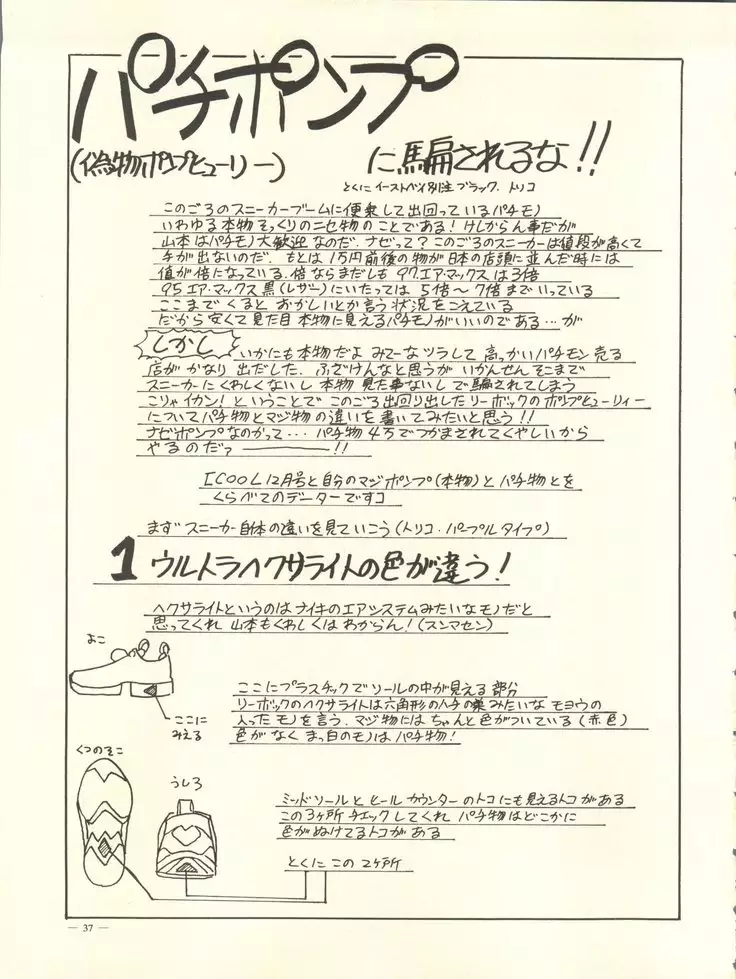 パチポンプ
(偽物ポンプヒューリー)
に騙されるな!!
とくに イーストベイ別注 ブラック、トリコ
このごろのスニーカーブームに便乗して出回っているパチモノ
いわゆる本物そっくりのニセ物のことである!けしからん事だが
山本はパチモノ大歓迎なのだ、ナゼって?このごろのスニーカーは値段が高くて
手が出ないのだ、もとは1万円前後の物が日本の店頭に並んだ時には
値が倍になっている、倍ならまだしも 97エア・マックスは3倍
95エア・マックス黒(レザー)にいたっては 5倍〜7倍までいっている
ここまでくると おかしいとか言う状況をこえている
だから安くて見た目本物に見えるパチモノがいいのである…が
しかし
いかにも本物だよ みてーなツラして 高っかいパチモン売る
店がかなり出だした、ふざけんなと思うが いかんせんそこまで
スニーカーにくわしくないし 本物見た事ないし で騙されてしまう
こりゃイカン!ということで このごろ出回り出した リーボックのポンプヒューリィー
についてパチ物とマジ物の違いを書いてみたいと思う!!
ナゼポンプなのかって… パチ物4万でつかまされてくやしいから
やるのだァ――!!
[COOL12月号と自分のマジポンプ(本物)とパチ物とを
くらべてのデーターですコ
まずスニーカー自体の違いを見ていこう(トリコ・パープルタイプ)
1 ウルトラヘクサライトの色が違う!
ヘクサライトというのはナイキのエアシステムみたいなモノだと
思ってくれ 山本もくわしくはわからん!(スンマセン)
よこ
ここに
みえる
ここにプラスチックでソールの中が見える部分
リーボックのヘクサライトは六角形のハチの巣みたいなモヨウの
入ったモノを言う、マジ物にはちゃんと色がついている(赤色)
色がなくまっ白のモノはパチ物!
くつのそこ
うしろ
ミッドソールとヒールカウンターのトコにも見えるトコがある
この3ヶ所チェックしてくれ パチ物はどこかに
色がぬけてるトコがある
とくにこの2ヶ所
— 37 —